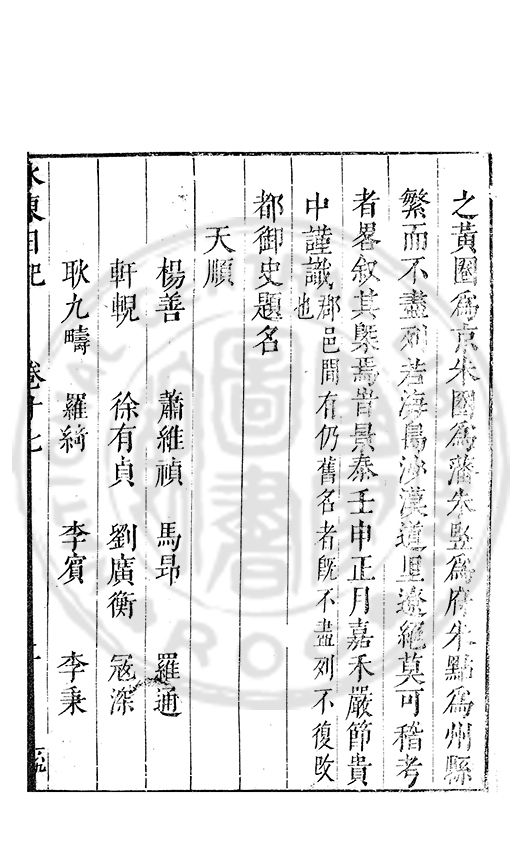 之黃圈為京朱圈為藩朱豎為府朱點為州縣
繁而不盡列若海島沙漠道里遼絕莫可稽考
者畧叙其槩焉旹景泰壬申正月嘉禾嚴節貴
中謹識郡邑間有仍舊名者既不盡列不復改也
都御史題名
天順
楊善 蕭維禎 馬昂 羅通
軒輗 徐有貞 劉廣衡 寇深
耿九疇 羅綺 李賓 李秉
水東日記 卷十七